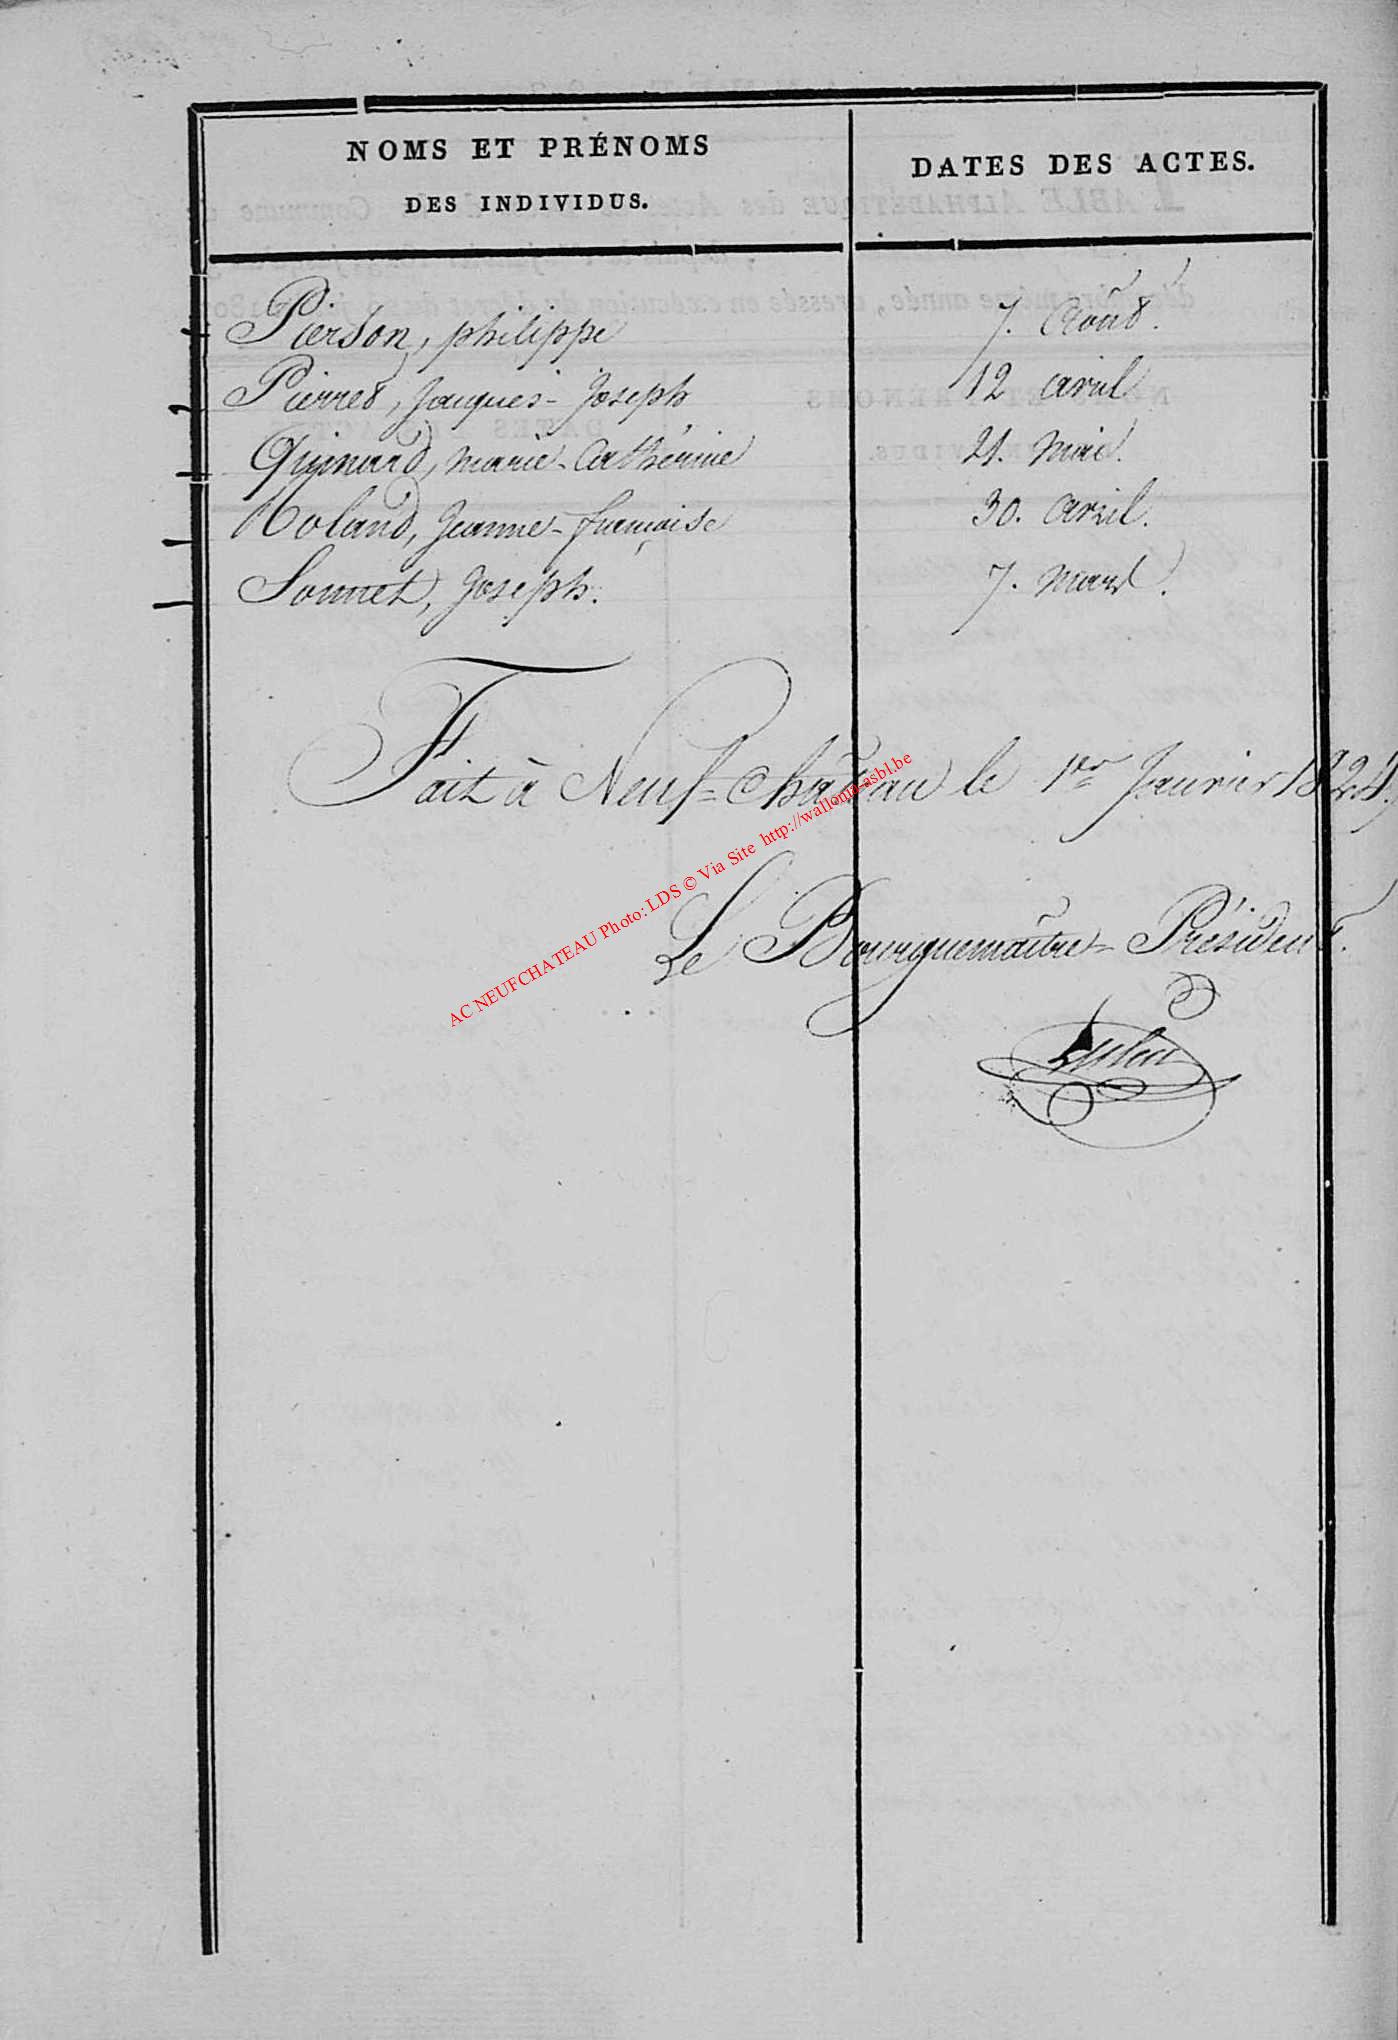 NOMS ET PRÉNOMS
DES INDIVIDUS.
DATES DES ACTES.
Pierson, philippe 7. Août.
Pierret, Jacques-Joseph 12 avril
Quinard, Marie-Cathérine 21. Mai.
Roland, Jeanne-françoise 30. avril.
Sonnet, Joseph. 7. Mars.
Fait à Neuf=Château le 1er Janvier 1824.
Le Bourguemaître=Président.
AC NEUFCHATEAU Photo: LDS © Via Site http://wallonia-asbl.be